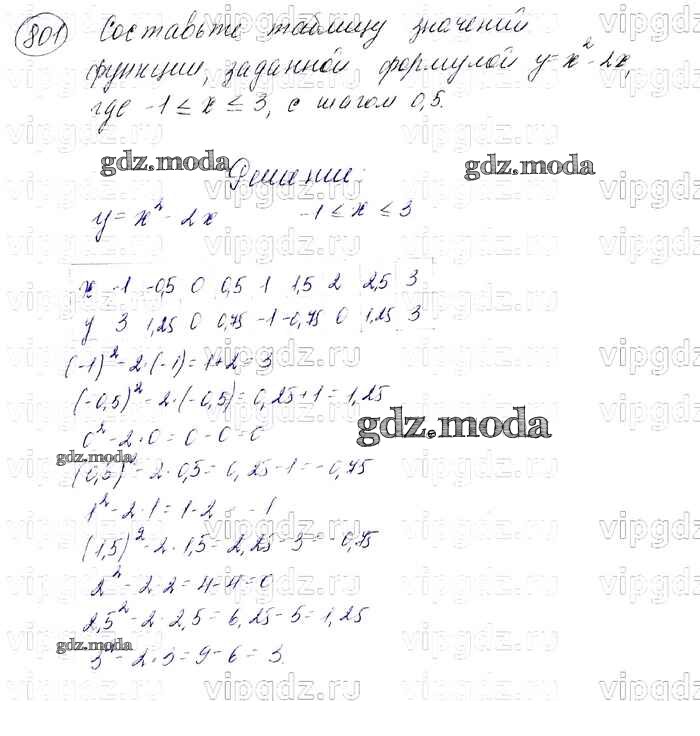 801 Составьте таблицу значений
функции, заданной формулой y=x²-2x,
где -1 ≤ x ≤ 3, с шагом 0,5.
gdz.moda
gdz.moda
Решение:
y=x²-2x -1 ≤ x ≤ 3
x -1 -0,5 0 0,5 1 1,5 2 2,5 3
y 3 1,25 0 0,75 -1 -0,75 0 1,25 3
(-1)²-2·(-1)=1+2=3
(-0,5)²-2·(-0,5)=0,25+1=1,25
gdz.moda
0²-2·0=0-0=0
gdz.moda
(0,5)²-2·0,5=0,25-1=-0,75
1²-2·1=1-2=-1
(1,5)²-2·1,5=2,25-3=-0,75
2²-2·2=4-4=0
2,5²-2·2,5=6,25-5=1,25
gdz.moda
3²-2·3=9-6=3.
vipgdz.ru